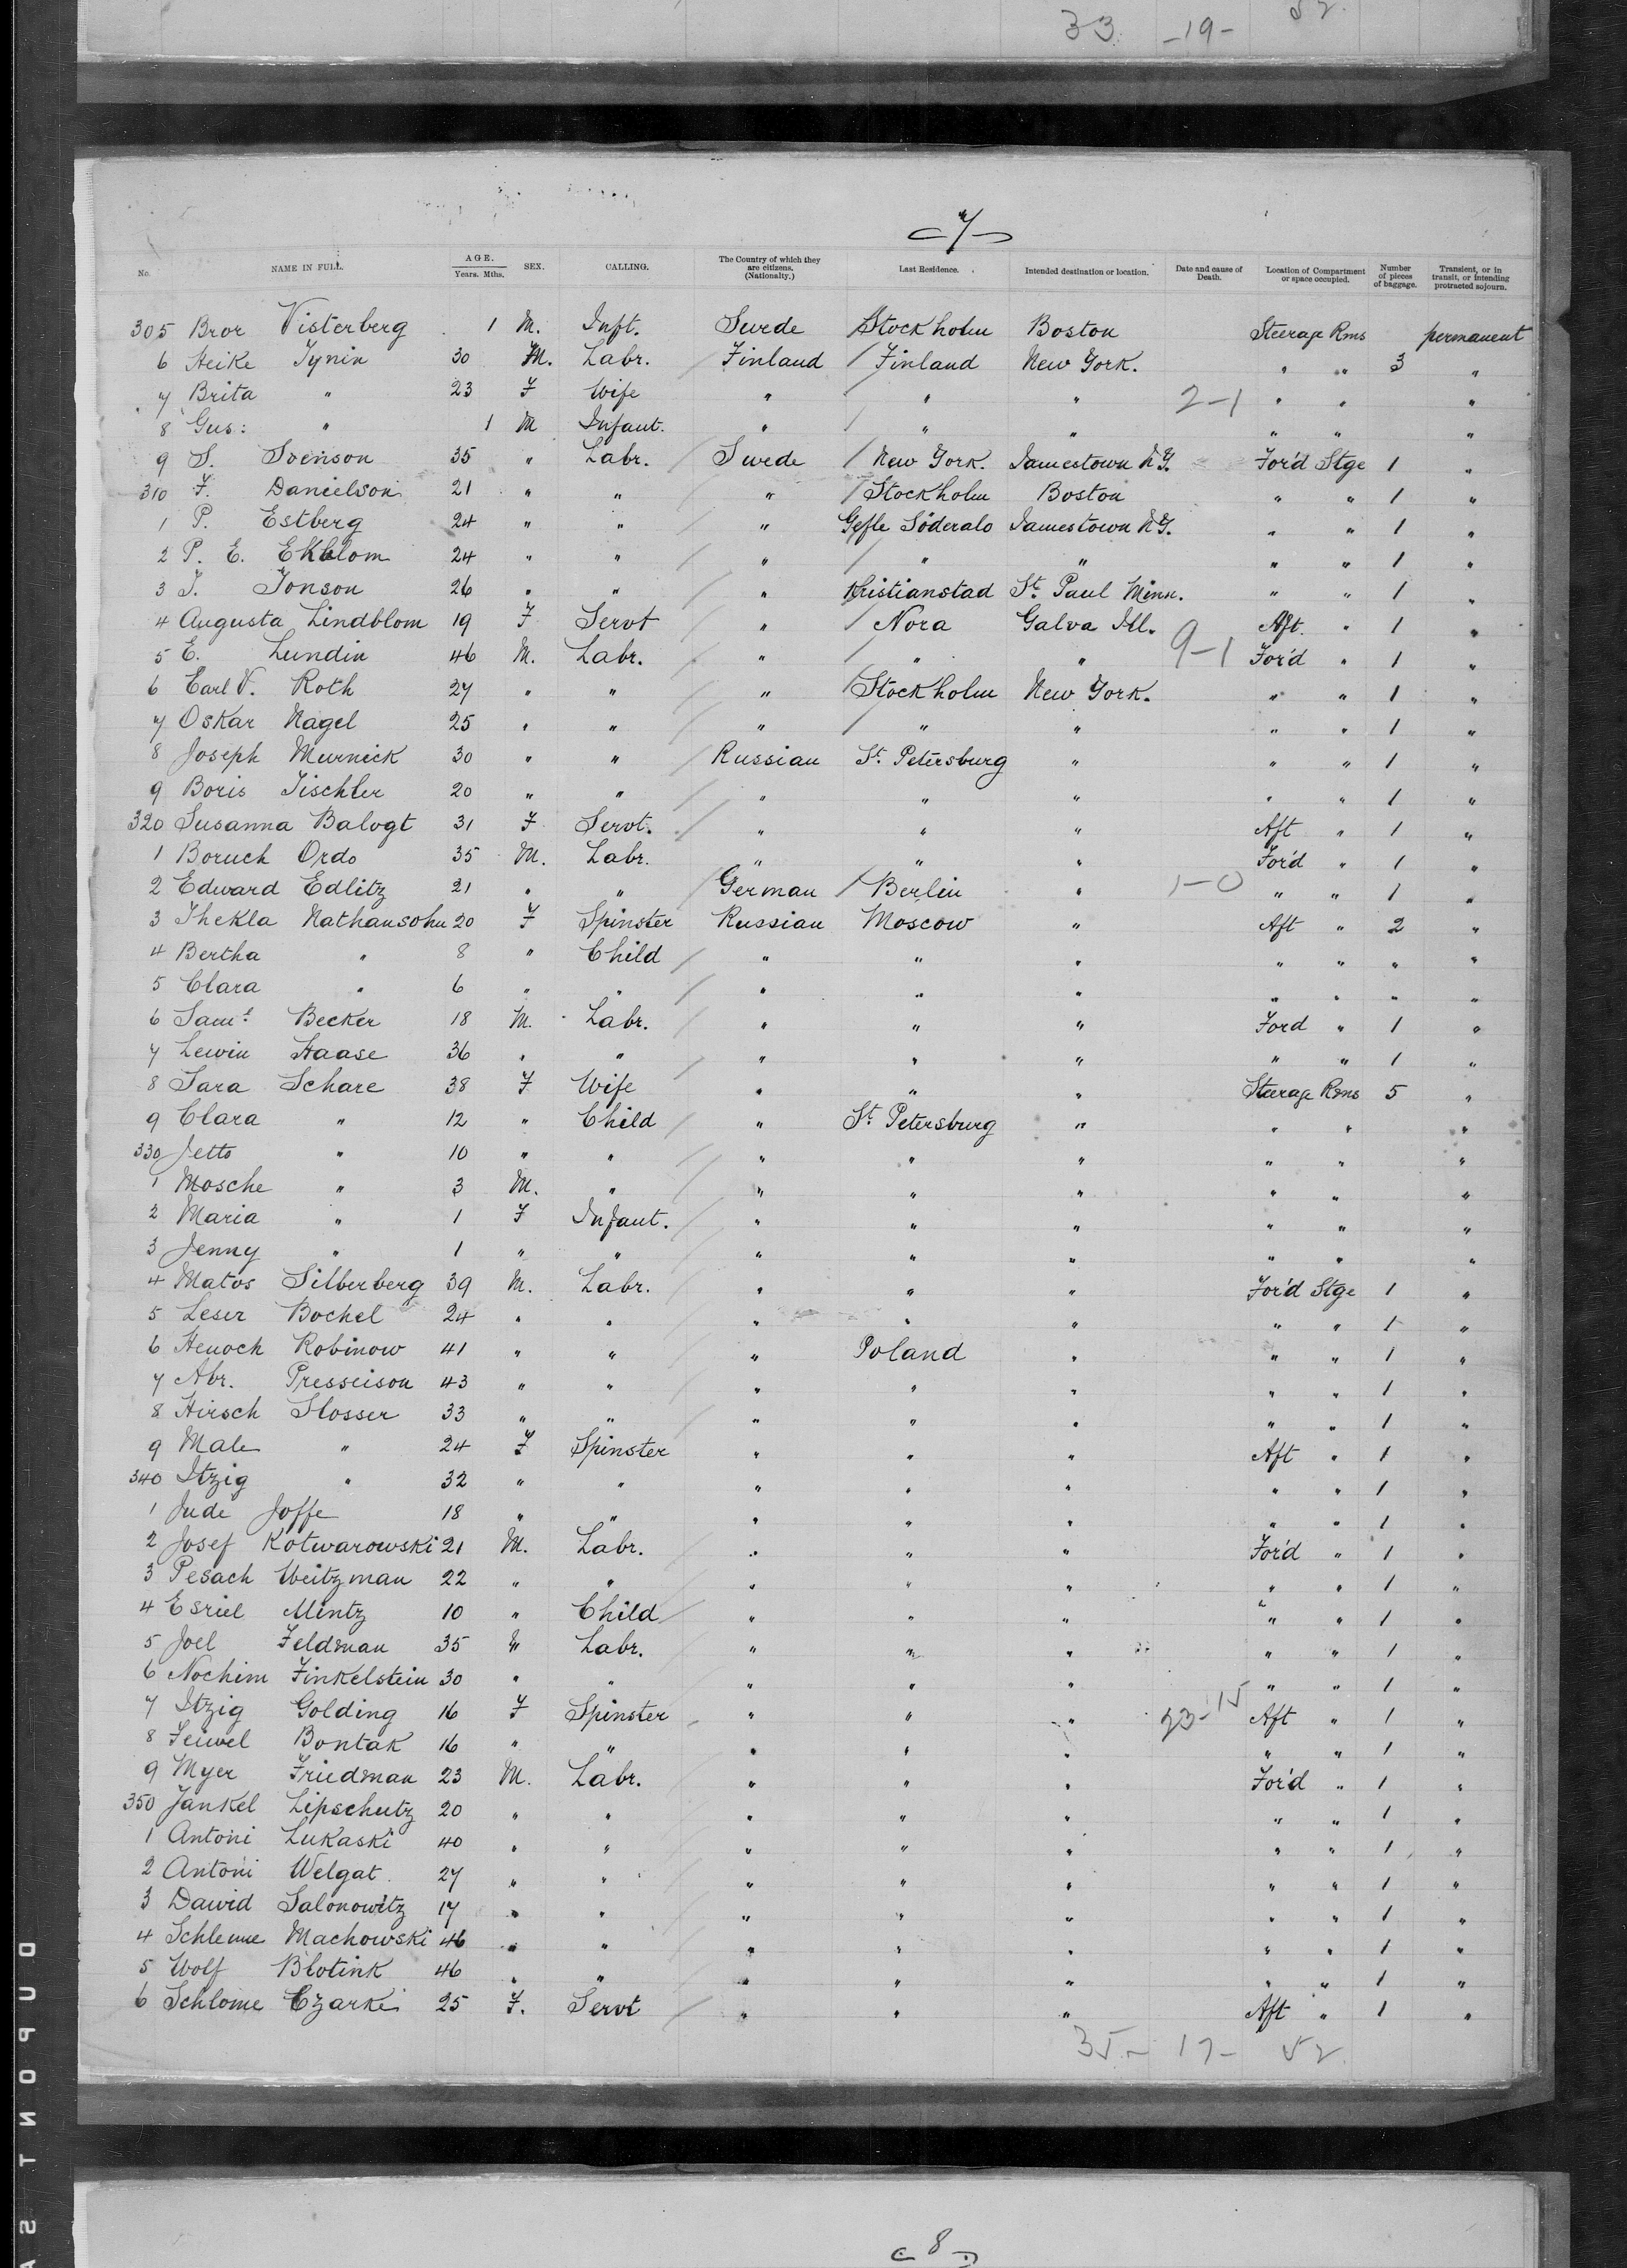 33 -19- 52
7
No. NAME IN FULL. AGE. Years. Mths. SEX. CALLING. The Country of which they are citizens. (Nationalty.) Last Residence. Intended destination or location. Date and cause of Death. Location of Compartment or space occupied. Number of pieces of baggage. Transient, or in transit, or intending protracted sojourn.
305 Bror Visterberg 1 M. Inft. Swede Stockholm Boston Steerage Rms permanent
6 Heike Tynin 30 M. Labr. Finland Finland New York. " " 3 "
7 Brita " 23 F Wife " " " 2-1 " " "
8 Gus: " 1 M Infant. " " " " " "
9 S. Svenson 35 " Labr. Swede New York. Jamestown N.Y. For'd Stge 1 "
310 F. Danielson 21 " " " Stockholm Boston " " 1 "
1 P. Estberg 24 " " " Gefle Söderalo Jamestown N.Y. " " 1 "
2 P. E. Ekblom 24 " " " " " " " 1 "
3 J. Jonson 26 " " " Kristianstad St. Paul Minn. " " 1 "
4 Augusta Lindblom 19 F Servt " Nora Galva Ill. Aft. " 1 "
5 E. Lundin 46 M. Labr. " " " 9-1 For'd " 1 "
6 Earl V. Roth 27 " " " Stockholm New York. " " 1 "
7 Oskar Nagel 25 " " " " " " " 1 "
8 Joseph Murnick 30 " " Russian St. Petersburg " " " 1 "
9 Boris Tischler 20 " " " " " " " 1 "
320 Susanna Balogt 31 F Servt. " " " Aft " 1 "
1 Boruch Ordo 35 M. Labr. " " " For'd " 1 "
2 Edward Edlitz 21 " " German Berlin " 1-0 " " 1 "
3 Thekla Nathansohn 20 F Spinster Russian Moscow " Aft " 2 "
4 Bertha " 8 " Child " " " " " " "
5 Clara " 6 " " " " " " " " "
6 Saml. Becker 18 M. Labr. " " " Ford " 1 "
7 Lewin Haase 36 " " " " " " " 1 "
8 Sara Schare 38 F Wife " " " Steerage Rms 5 "
9 Clara " 12 " Child " St. Petersburg " " " "
330 Jetto " 10 " " " " " " " "
1 Mosche " 3 M. " " " " " " "
2 Maria " 1 F Infant. " " " " " "
3 Jenny " 1 " " " " " " " "
4 Matos Silberberg 39 M. Labr. " " " For'd Stge 1 "
5 Leser Bochel 24 " " " " " " " 1 "
6 Henoch Robinow 41 " " " Poland " " " 1 "
7 Abr. Presseison 43 " " " " " " " 1 "
8 Hirsch Slosser 33 " " " " " " " 1 "
9 Male " 24 F Spinster " " " Aft " 1 "
340 Itzig " 32 " " " " " " " 1 "
1 Jude Joffe 18 " " " " " " " 1 "
2 Josef Kotwarowski 21 M. Labr. " " " For'd " 1 "
3 Pesach Weitzman 22 " " " " " " " 1 "
4 Esriel Mintz 10 " Child " " " " " 1 "
5 Joel Feldman 35 " Labr. " " " " " 1 "
6 Nochim Finkelstein 30 " " " " " " " 1 "
7 Itzig Golding 16 F Spinster " " " 23-15 Aft " 1 "
8 Feiwel Bontak 16 " " " " " " " 1 "
9 Myer Friedman 23 M. Labr. " " " For'd " 1 "
350 Jankel Lipschutz 20 " " " " " " " 1 "
1 Antoni Lukaski 40 " " " " " " " 1 "
2 Antoni Welgat 27 " " " " " " " 1 "
3 Dawid Salonowitz 17 " " " " " " " 1 "
4 Schleume Machowski 46 " " " " " " " 1 "
5 Wolf Blotink 46 " " " " " " " 1 "
6 Schlome Czarke 25 F. Servt " " " Aft " 1 "
35 - 17 - 52
8
DUPONT SA